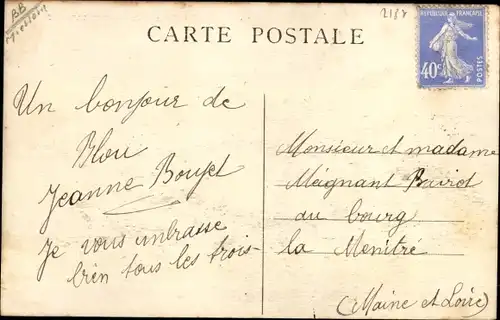 BB
2187
CARTE POSTALE
REPUBLIQUE FRANÇAISE
40c
POSTES
Un bonjour de
Blou
Jeanne Bouyet
Je vous embrasse
bien tous les trois
Monsieur et madame
Méignant
au bourg
la Menitré
(Maine et Loire)